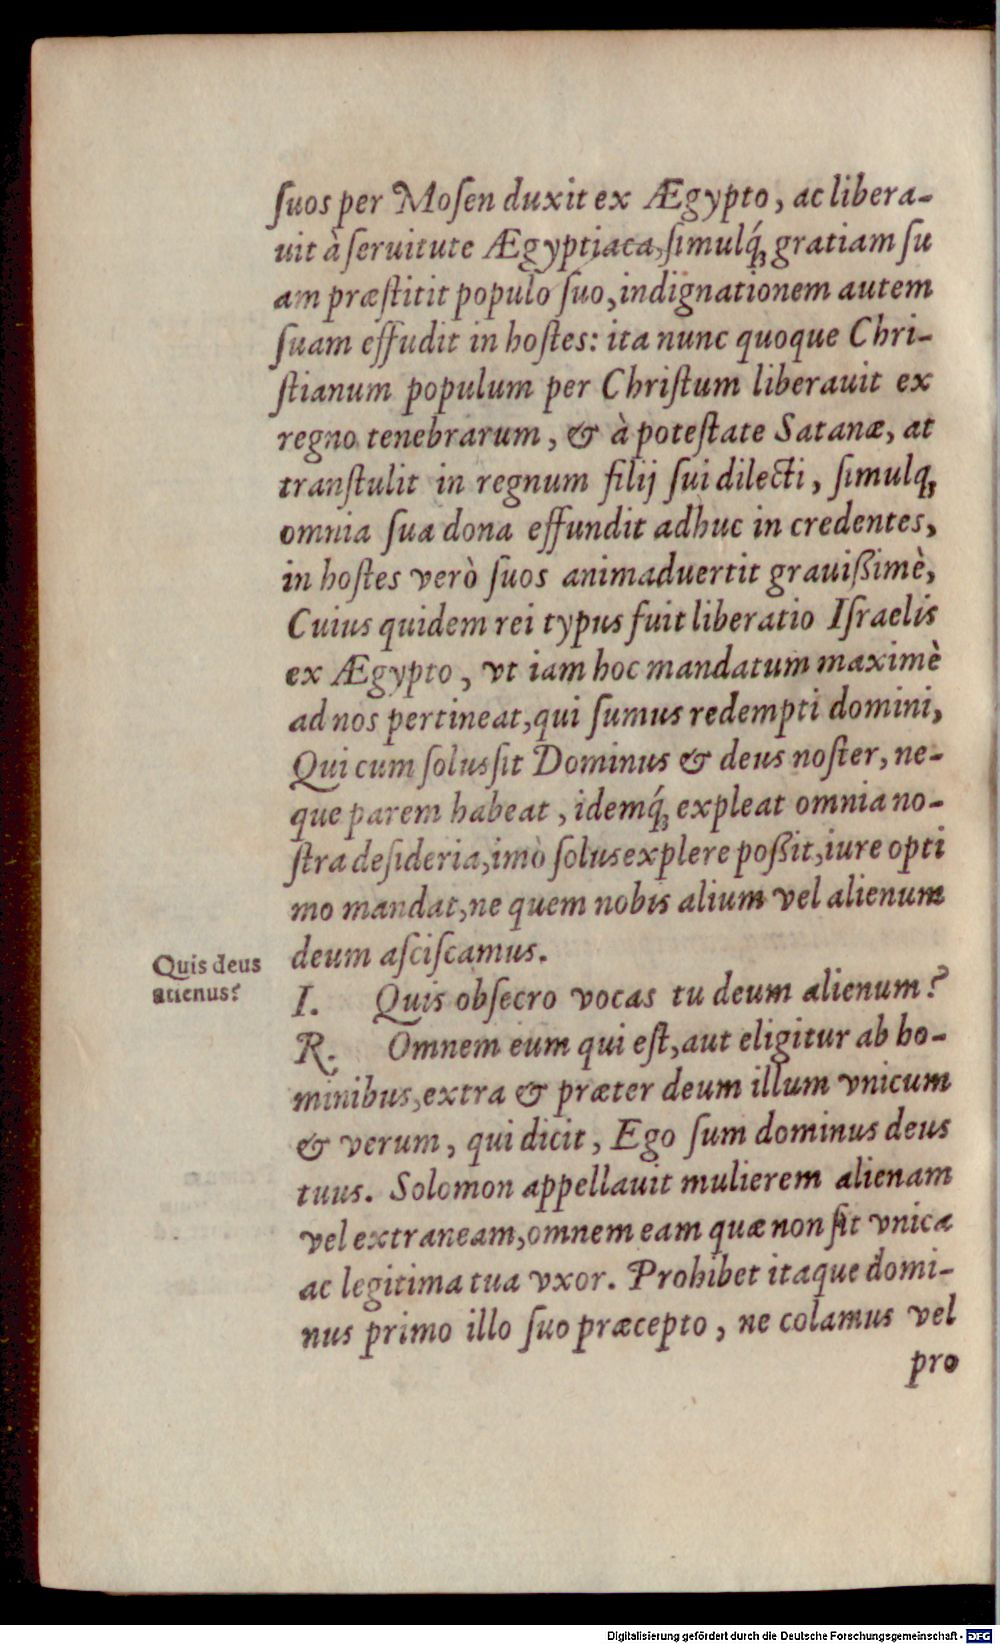 ſuos per Moſen duxit ex Ægypto, ac libera-
uit à ſeruitute Ægyptiaca, ſimulq́ꝫ gratiam ſu
am præſtitit populo ſuo, indignationem autem
ſuam effudit in hoſtes: ita nunc quoque Chri-
ſtianum populum per Chriſtum liberauit ex
regno tenebrarum, & à poteſtate Satanæ, at
tranſtulit in regnum filij ſui dilecti, ſimulqꝫ
omnia ſua dona effundit adhuc in credentes,
in hoſtes verò ſuos animaduertit grauißimè,
Cuius quidem rei typus fuit liberatio Iſraelis
ex Ægypto, vt iam hoc mandatum maximè
ad nos pertineat, qui ſumus redempti domini,
Qui cum ſolus ſit Dominus & deus noſter, ne-
que parem habeat, idemq́ꝫ expleat omnia no-
ſtra deſideria, imò ſolus explere poßit, iure opti
mo mandat, ne quem nobis alium vel alienum
deum aſciſcamus.
Quis deus
alienus?
I. Quis obſecro vocas tu deum alienum?
R. Omnem eum qui eſt, aut eligitur ab ho-
minibus, extra & præter deum illum vnicum
& verum, qui dicit, Ego ſum dominus deus
tuus. Solomon appellauit mulierem alienam
vel extraneam, omnem eam quæ non ſit vnica
ac legitima tua vxor. Prohibet itaque domi-
nus primo illo ſuo præcepto, ne colamus vel
pro
Digitalisierung gefördert durch die Deutsche Forschungsgemeinschaft - DFG